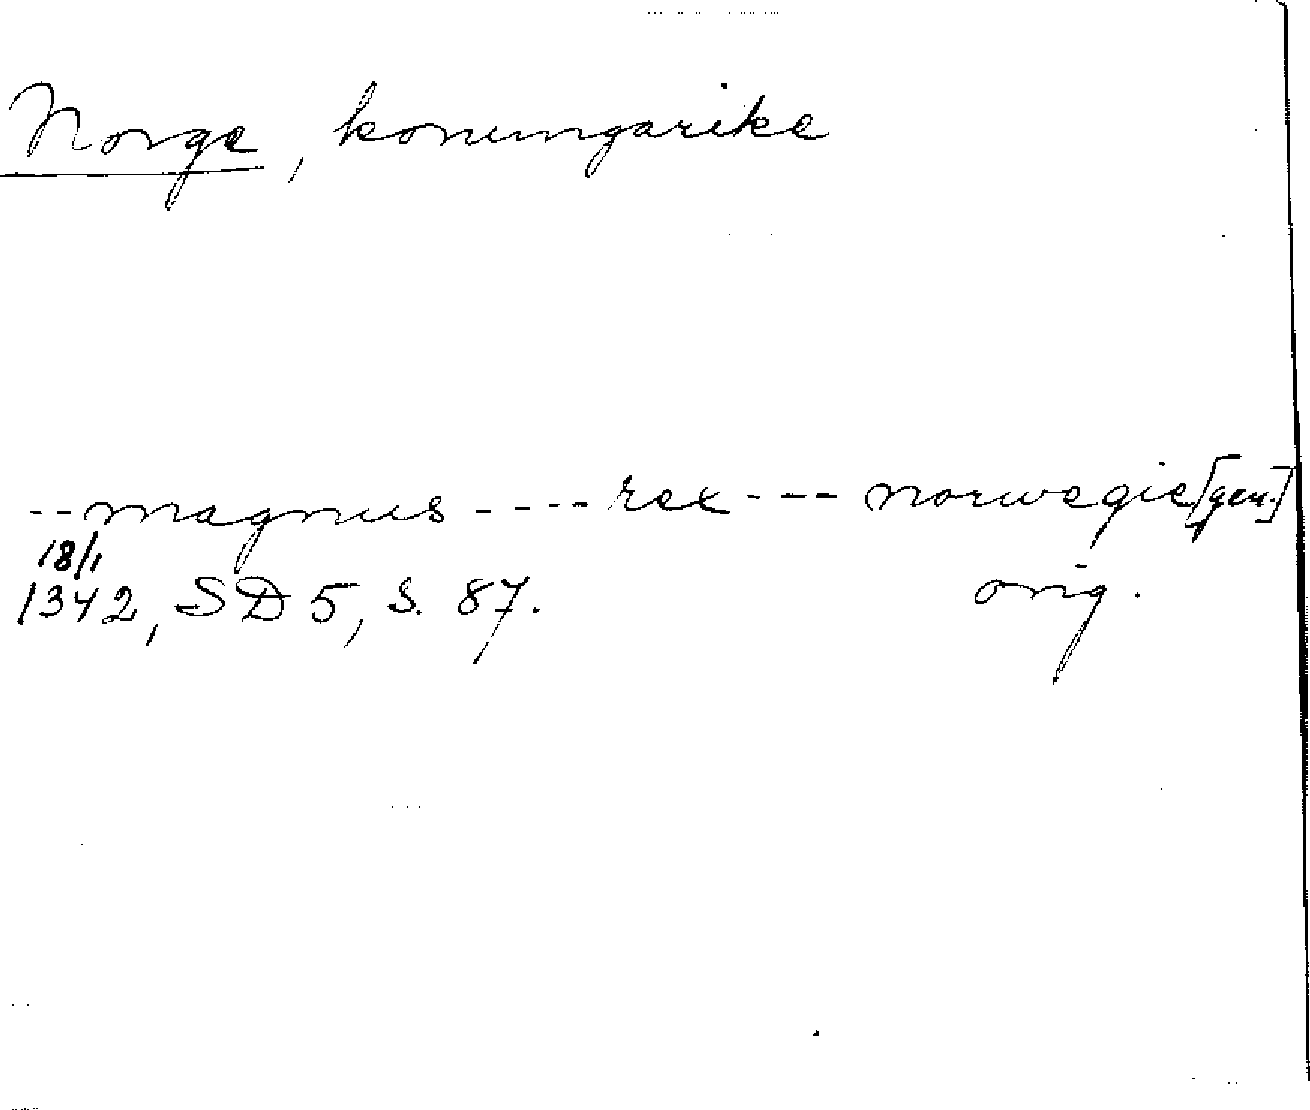 Norge, konungarike
-- magnus ---- rex --- norwegie [gen.]
18/1
1342, SD 5, s. 87. orig.